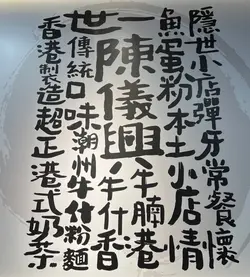 隱世小店彈牙常餐懷
魚蛋粉本土小店情
一陳儀興牛腩港
牛什香
世傳統口味潮州牛什粉麵
香港製造超正港式奶茶